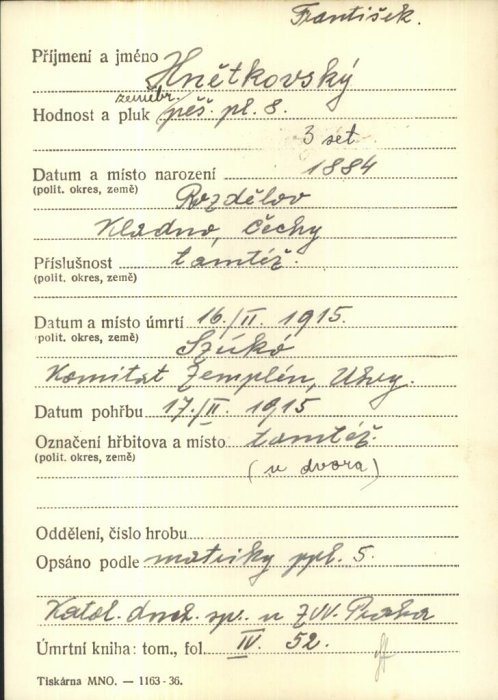 František.
Příjmení a jméno Hnětkovský
zeměbr.
Hodnost a pluk pěš. pl. 8.
3 set.
Datum a místo narození 1884
(polit. okres, země)
Rozdělov
Kladno, Čechy
Příslušnost tamtéž.
(polit. okres, země)
Datum a místo úmrtí 16./II. 1915.
(polit. okres, země)
Szúkó
Komitát Zemplén, Uhry.
Datum pohřbu 17./II. 1915
Označení hřbitova a místo tamtéž.
(polit. okres, země)
(u dvora)
Oddělení, číslo hrobu
Opsáno podle matriky ppl. 5.
Katol. duch. sp. u ZVV. Praha
Úmrtní kniha: tom., fol. IV. 52.
Tiskárna MNO. — 1163-36.